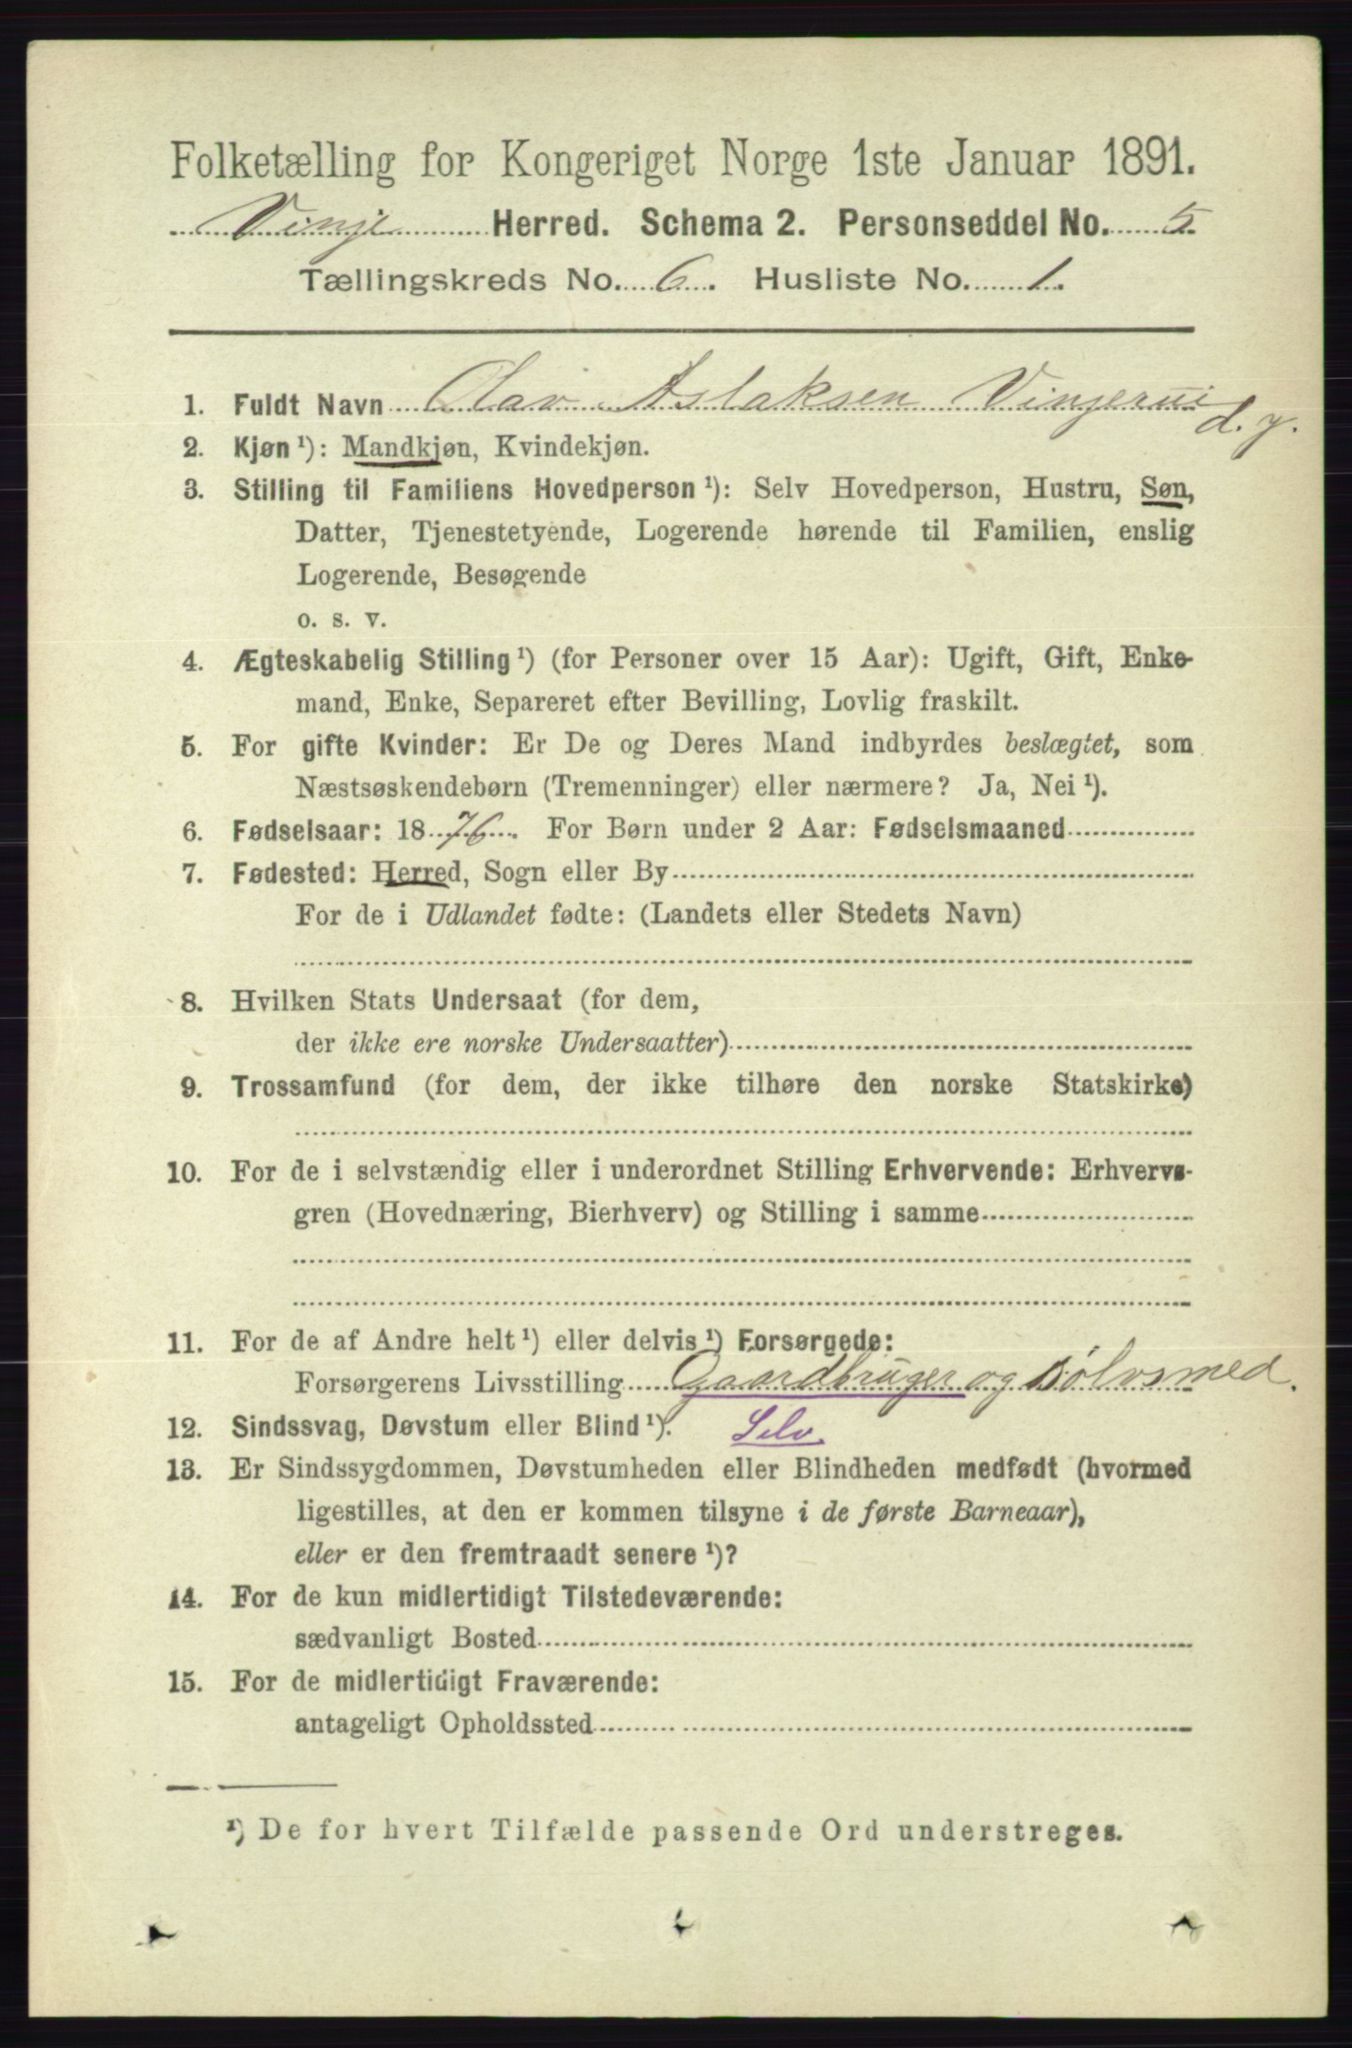 Folketælling for Kongeriget Norge 1ste Januar 1891.
Vinje Herred. Schema 2. Personseddel No. 5
Tællingskreds No. 6. Husliste No. 1.
1. Fuldt Navn Olav Aslaksen Vinjerui
d. y.
2. Kjøn ¹): Mandkjøn, Kvindekjøn.
3. Stilling til Familiens Hovedperson ¹): Selv Hovedperson, Hustru, Søn,
Datter, Tjenestetyende, Logerende hørende til Familien, enslig
Logerende, Besøgende
o. s. v.
4. Ægteskabelig Stilling ¹) (for Personer over 15 Aar): Ugift, Gift, Enke-
mand, Enke, Separeret efter Bevilling, Lovlig fraskilt.
5. For gifte Kvinder: Er De og Deres Mand indbyrdes beslægtet, som
Næstsøskendebørn (Tremenninger) eller nærmere? Ja, Nei ¹).
6. Fødselsaar: 1876. For Børn under 2 Aar: Fødselsmaaned
7. Fødested: Herred, Sogn eller By
For de i Udlandet fødte: (Landets eller Stedets Navn)
8. Hvilken Stats Undersaat (for dem,
der ikke ere norske Undersaatter)
9. Trossamfund (for dem, der ikke tilhøre den norske Statskirke)
10. For de i selvstændig eller i underordnet Stilling Erhvervende: Erhvervs-
gren (Hovednæring, Bierhverv) og Stilling i samme
11. For de af Andre helt ¹) eller delvis ¹) Forsørgede:
Forsørgerens Livsstilling Gaardbruger og Sølvsmed.
12. Sindssvag, Døvstum eller Blind ¹). Selv.
13. Er Sindssygdommen, Døvstumheden eller Blindheden medfødt (hvormed
ligestilles, at den er kommen tilsyne i de første Barneaar),
eller er den fremtraadt senere ¹)?
14. For de kun midlertidigt Tilstedeværende:
sædvanligt Bosted
15. For de midlertidigt Fraværende:
antageligt Opholdssted
¹) De for hvert Tilfælde passende Ord understreges.